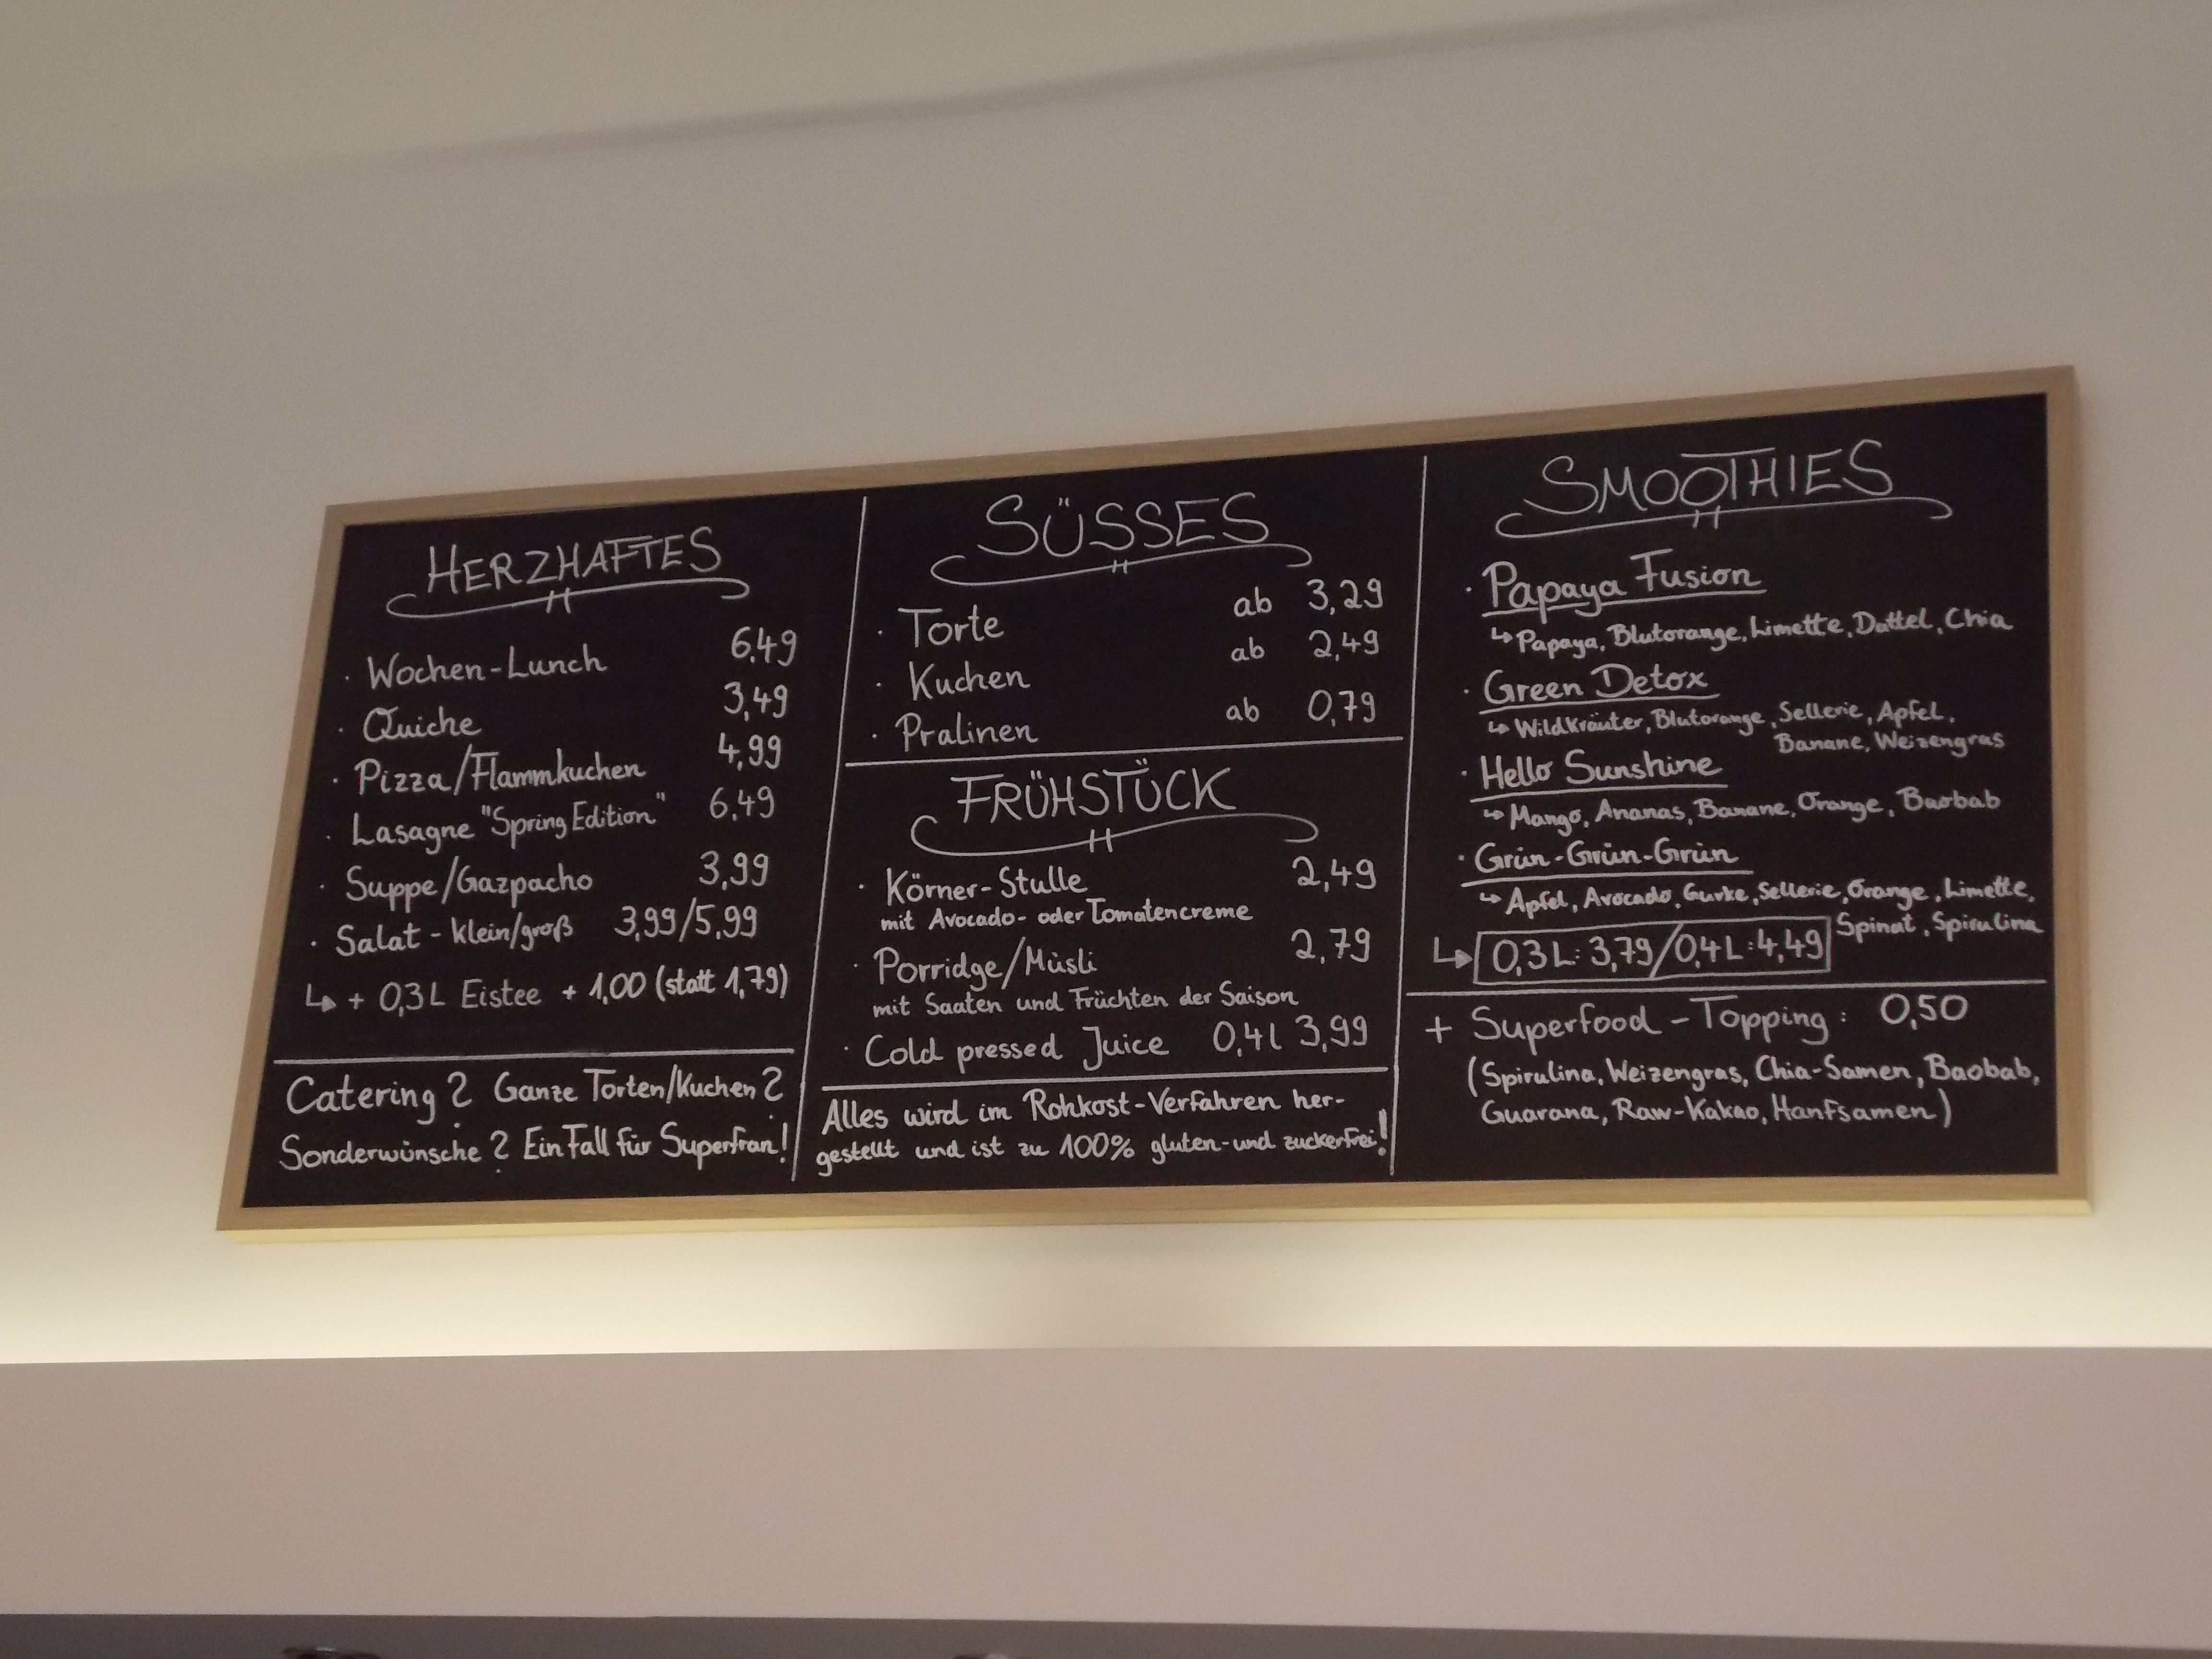 HERZHAFTES
· Wochen-Lunch 6,49
· Quiche 3,49
· Pizza/Flammkuchen 4,99
· Lasagne "Spring Edition" 6,49
· Suppe/Gazpacho 3,99
· Salat - klein/groß 3,99/5,99
↳ + 0,3L Eistee + 1,00 (statt 1,79)
Catering? Ganze Torten/Kuchen?
Sonderwünsche? Ein Fall für Superfran!
SÜSSES
· Torte ab 3,29
· Kuchen ab 2,49
· Pralinen ab 0,79
FRÜHSTÜCK
· Körner-Stulle 2,49
mit Avocado- oder Tomatencreme
· Porridge/Müsli 2,79
mit Saaten und Früchten der Saison
· Cold pressed Juice 0,4l 3,99
Alles wird im Rohkost-Verfahren her-
gestellt und ist zu 100% gluten-und zuckerfrei!
SMOOTHIES
· Papaya Fusion
↳ Papaya, Blutorange, Limette, Dattel, Chia
· Green Detox
↳ Wildkräuter, Blutorange, Sellerie, Apfel,
Banane, Weizengras
· Hello Sunshine
↳ Mango, Ananas, Banane, Orange, Baobab
· Grün-Grün-Grün
↳ Apfel, Avocado, Gurke, Sellerie, Orange, Limette,
Spinat, Spirulina
↳ 0,3L: 3,79/0,4L: 4,49
+ Superfood-Topping: 0,50
(Spirulina, Weizengras, Chia-Samen, Baobab,
Guarana, Raw-Kakao, Hanfsamen)